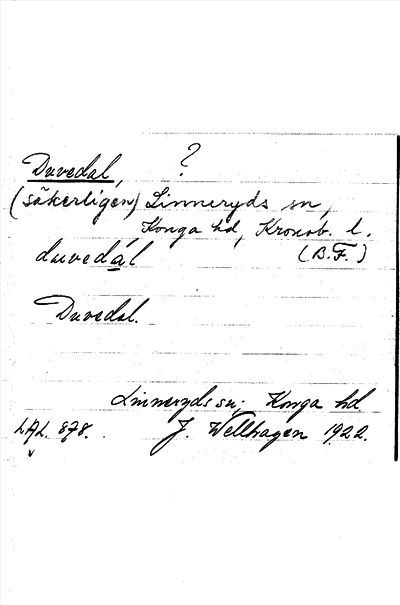 ?
Duvedal,
(säkerligen) Linneryds sn,
Konga hd, Kronob. l.
duvedál (B.F.)
Duvedal.
Linneryds sn; Konga hd
LAL. 878. J. Wellhagen 1922.